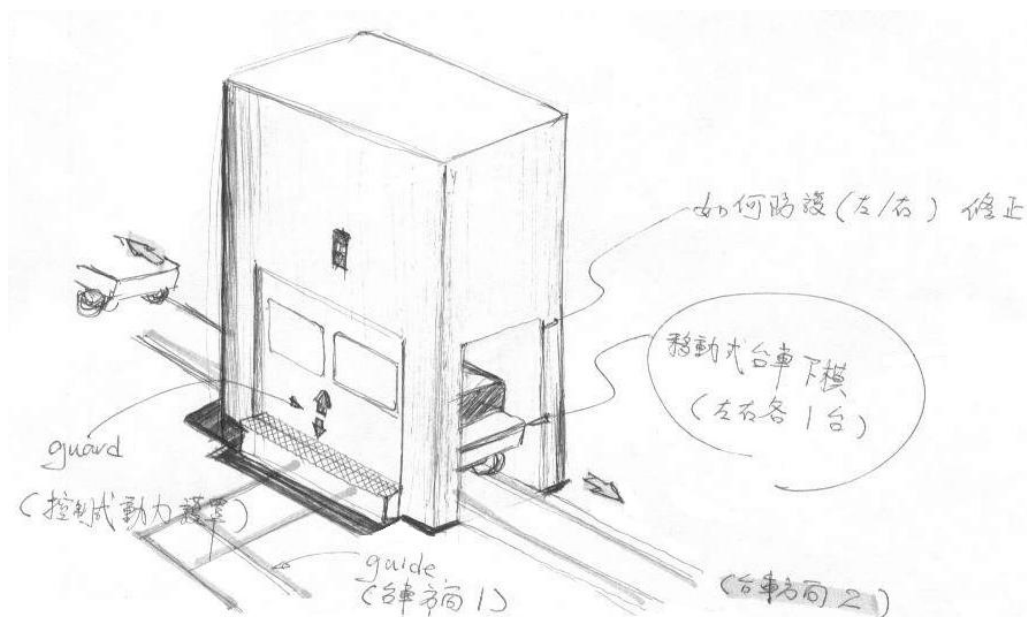 如何防護(左/右) 修正
移動式台車下模
(左右各1台)
guard
(控制式動力護罩)
guide
(台車方向1)
(台車方向2)